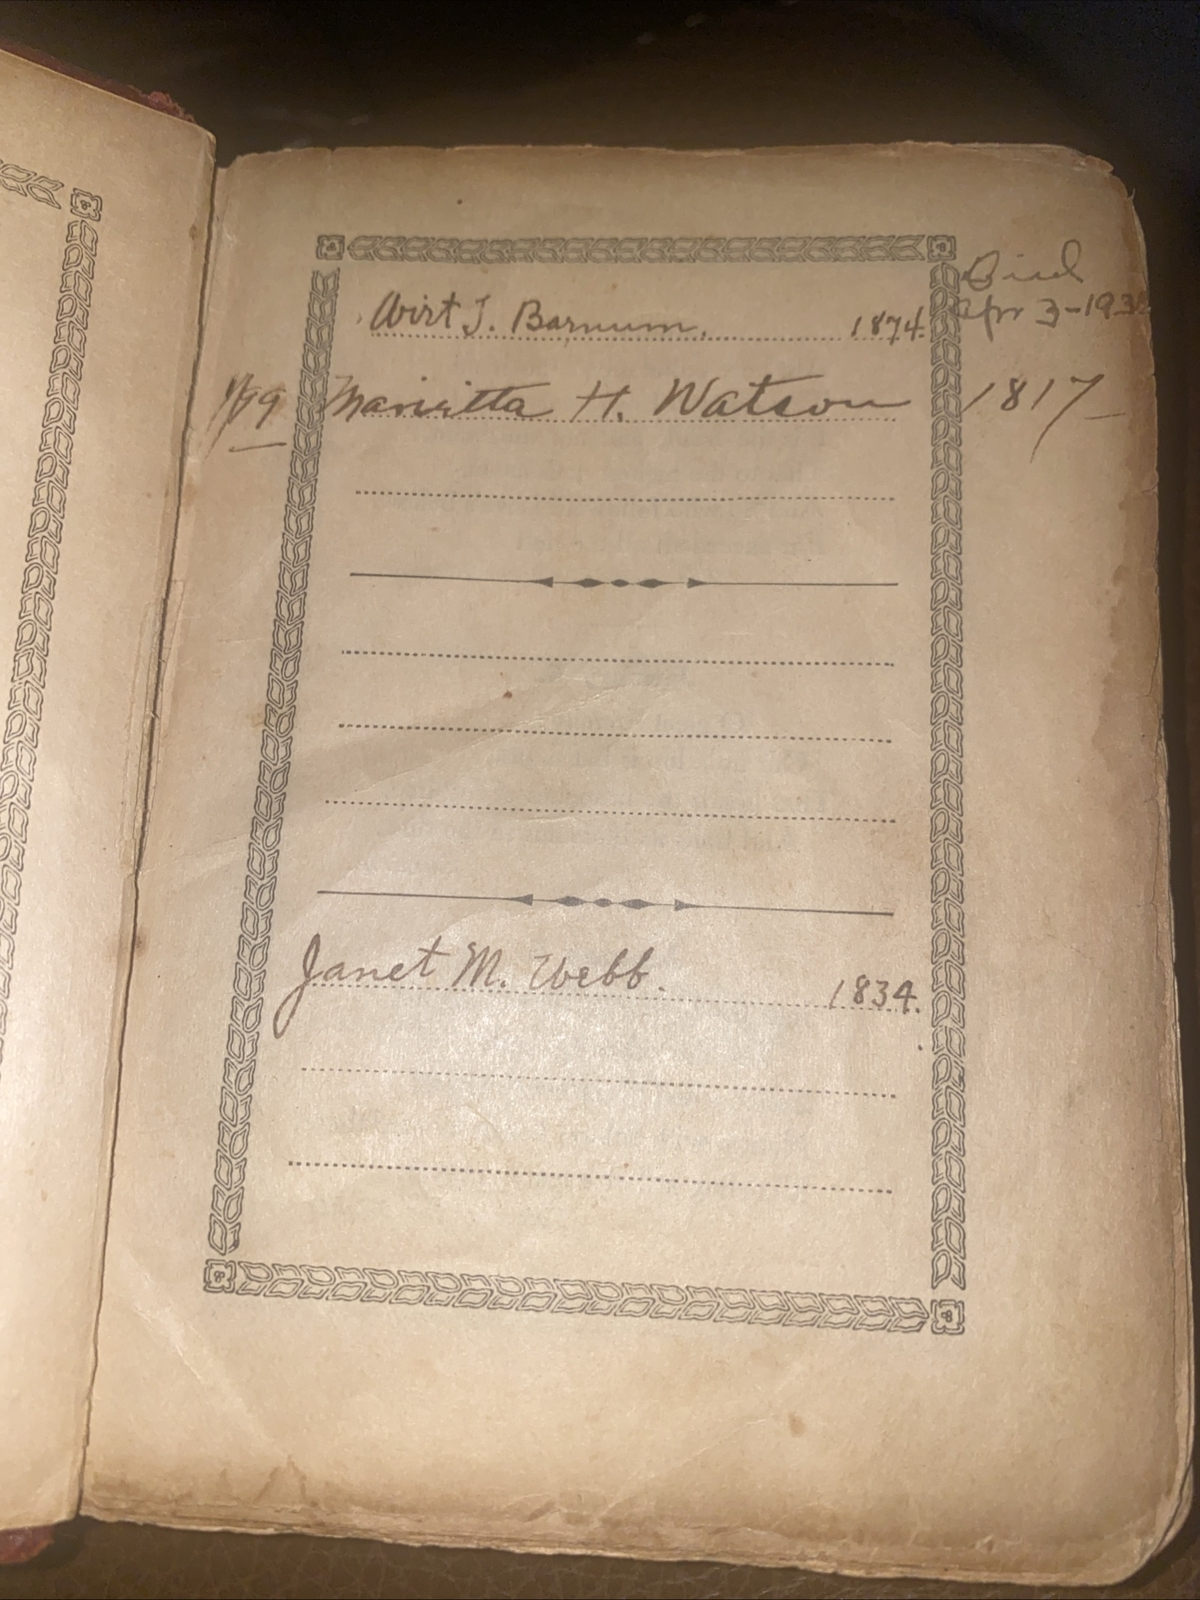 Died
Wirt J. Barnum. 1874.
Apr 3-193
Marietta H. Watson 1817
Janet M. Webb. 1834.